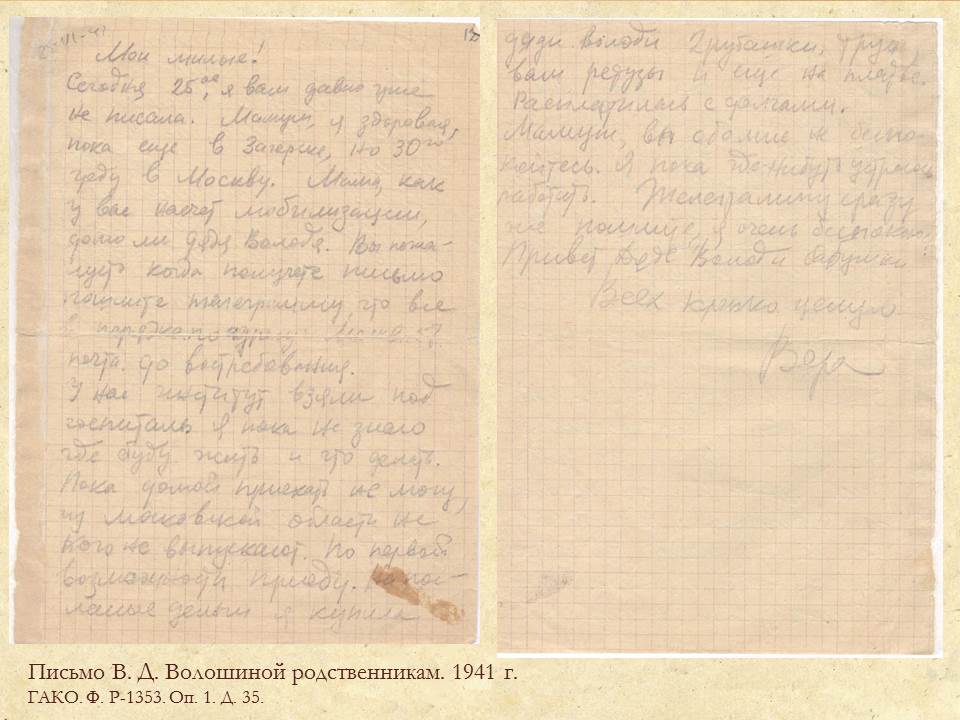 25-VI-41
Мои милые!
Сегодня 25ое, я вам давно уже
не писала. Мамуш, я здорова,
пока еще в Загорске, но 30го
уеду в Москву. Мама, как
у вас насчет мобилизации,
дома ли дядя Володя. Вы пожа-
луста когда получете письмо
пошлите телеграмму, что все
в порядке по адресу
почта до востребования.
У нас институт взяли под
госпиталь я пока не знаю
где буду жить и что делать.
Пока домой приехать не могу,
из Московской области не
кого не выпускают. По первой
возможности приеду. На пос-
ланые деньги я купила
дяди Володи 2 рубашки, трусы,
вам ретузы и еще на платье.
Расплатилась с долгами.
Мамуш, вы обо мне не беспо-
койтесь. Я пока
работать. Телеграмму сразу
же пошлите, я очень беспокоюсь.
Привет дяде Володи бабушки
Всех крепко целую
Вера
Письмо В. Д. Волошиной родственникам. 1941 г.
ГАКО. Ф. Р-1353. Оп. 1. Д. 35.